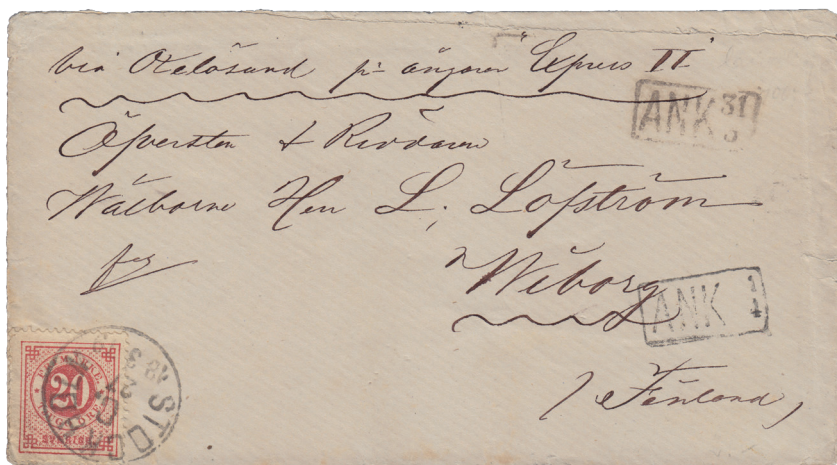 via Oxelösund pr ångaren "Express II"
ANK 31/3
Öfversten & Riddaren
Wälborne Herr L. Löfström
Wiborg
ANK 1/4
Finland
20
STOCK